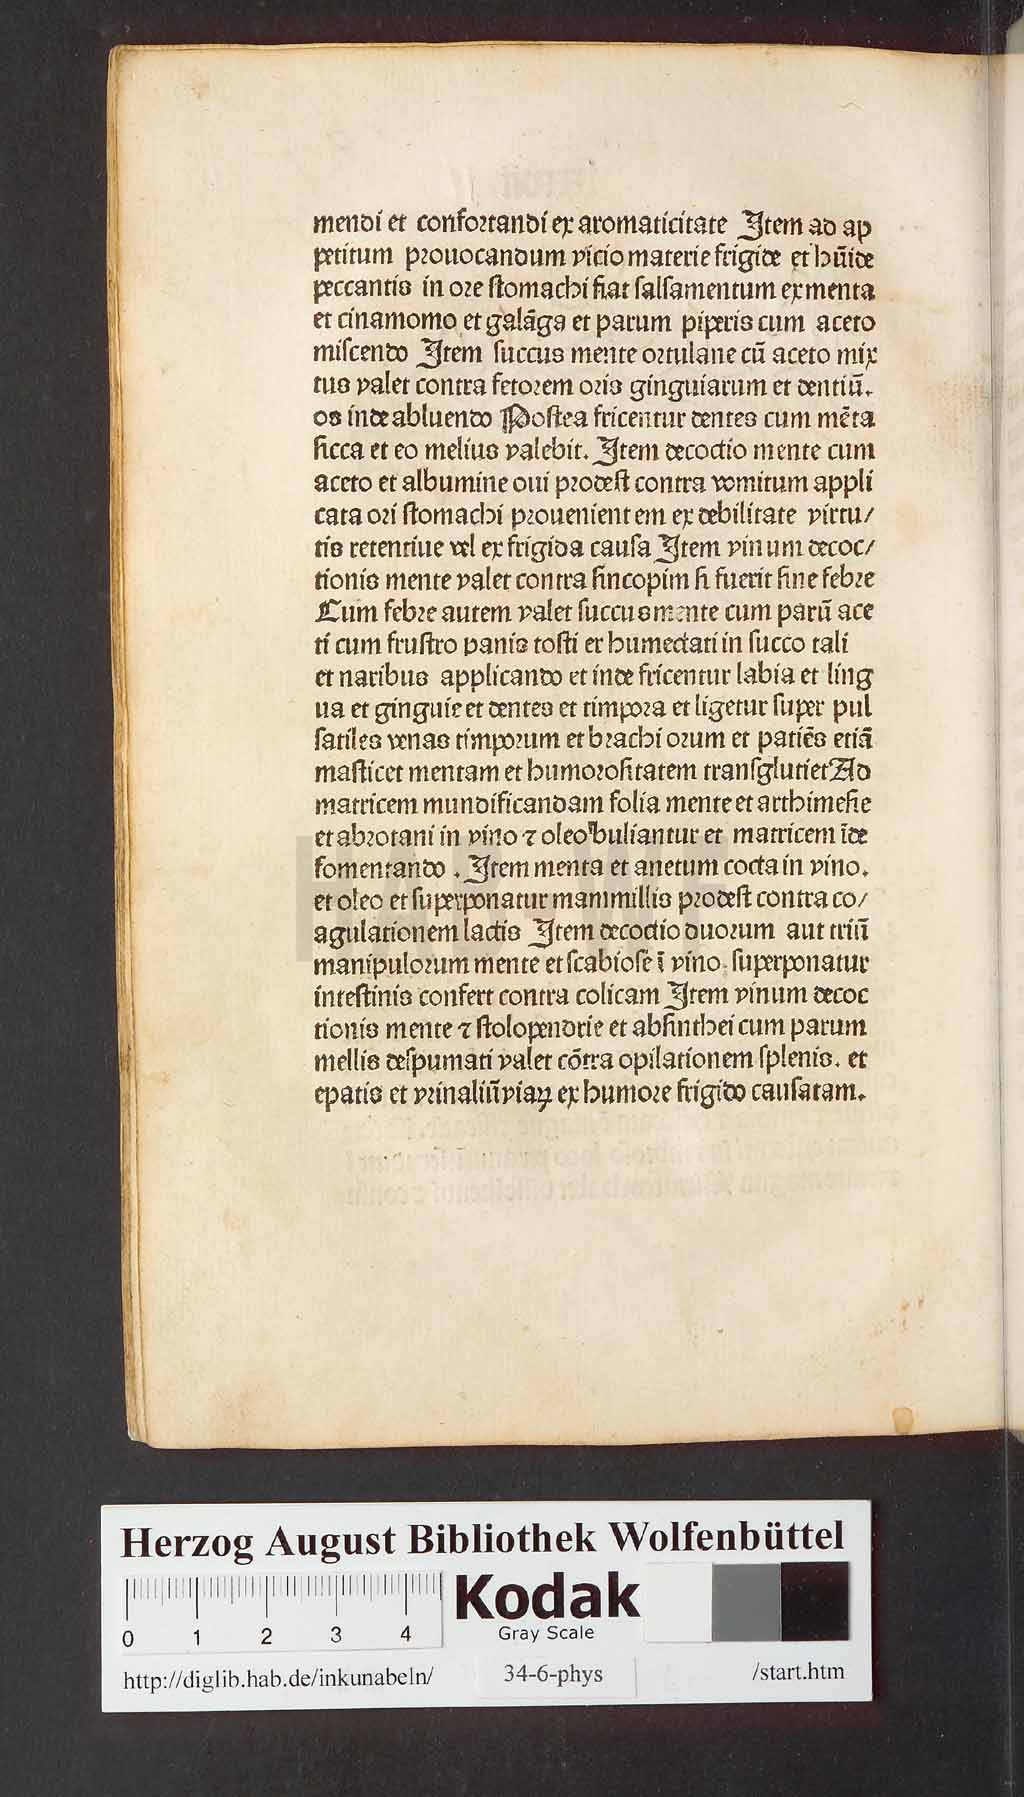 mendi et confortandi ex aromaticitate Item ad ap
petitum prouocandum vicio materie frigide et hūide
peccantis in ore stomachi fiat salsamentum ex menta
et cinamomo et galāga et parum piperis cum aceto
miscendo Item succus mente ortulane cū aceto mix
tus valet contra fetorem oris ginguiarum et dentiū.
os inde abluendo Postea fricentur dentes cum mēta
sicca et eo melius valebit. Item decoctio mente cum
aceto et albumine oui prodest contra vomitum appli
cata ori stomachi prouenient em ex debilitate virtu/
tis retentiue vel ex frigida causa Item vinum decoc/
tionis mente valet contra sincopim si fuerit sine febre
Cum febre autem valet succus mente cum parū ace
ti cum frustro panis tosti et humectati in succo tali
et naribus applicando et inde fricentur labia et ling
ua et ginguie et dentes et timpora et ligetur super pul
satiles venas timporum et brachi orum et patiēs etiā
masticet mentam et humorositatem transglutiet Ad
matricem mundificandam folia mente et arthimesie
et abrotani in vino ⁊ oleo buliantur et matricem īde
fomentando . Item menta et anetum cocta in vino.
et oleo et superponatur mammillis prodest contra co/
agulationem lactis Item decoctio duorum aut triū
manipulorum mente et scabiose ī vino. superponatur
intestinis confert contra colicam Item vinum decoc
tionis mente ⁊ stolopendrie et absinthei cum parum
mellis despumati valet cōtra opilationem splenis. et
epatis et vrinaliū viaꝝ ex humore frigido causatam.
HAB - WF
Herzog August Bibliothek Wolfenbüttel
0 1 2 3 4
Kodak
Gray Scale
http://diglib.hab.de/inkunabeln/ 34-6-phys /start.htm